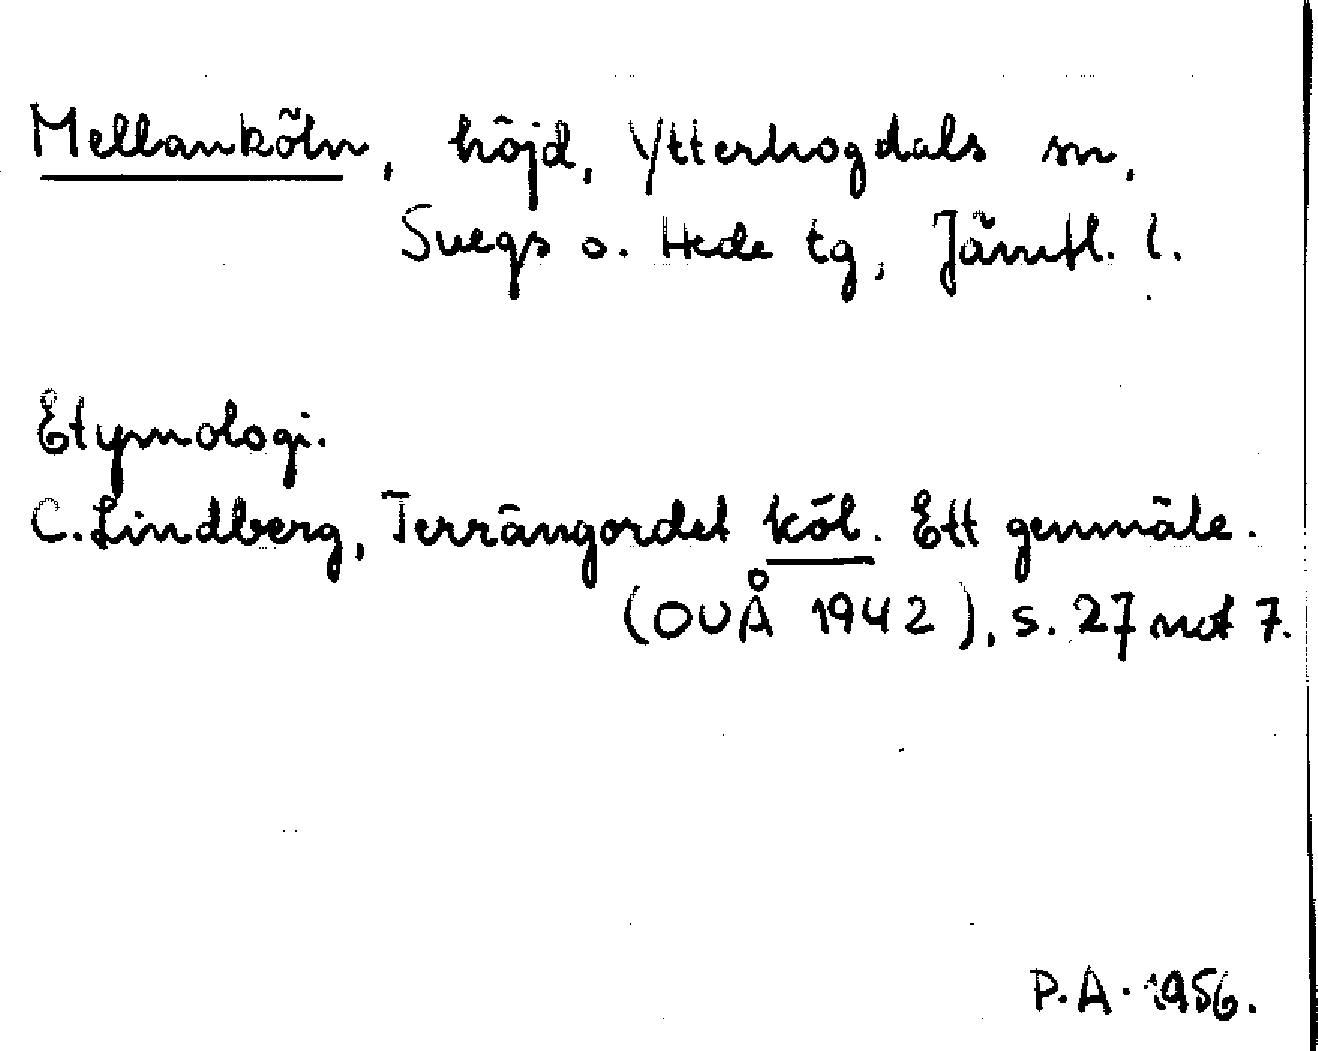 Mellanköln, höjd, Ytterhogdals sn,
Svegs o. Hede tg, Jämtl. l.
Etymologi.
C. Lindberg, Terrängordet köl. Ett genmäle.
(OUÅ 1942), s. 27 not 7.
P.A. 1956.